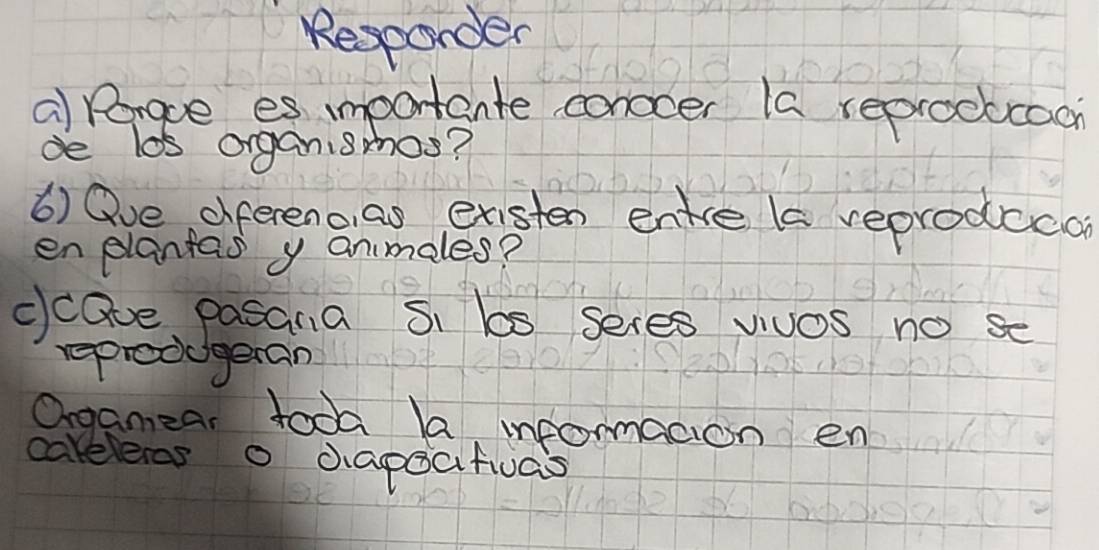 Responder
a) Porque es importante conocer la reproduccion
de los organismos?
b) Que diferencias existen entre la reproduccion
en plantas y animales?
c) ¿Que pasaria si los seres vivos no se
reprodugeran
Organizar toda la informacion en
carteleras o diapocitivas